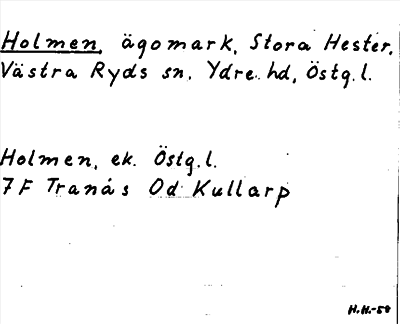 Holmen, ägomark, Stora Hester,
Västra Ryds sn, Ydre hd, Östg.l.
Holmen, ek. Östg.l.
7F Tranås Od Kullarp
H.H.-58